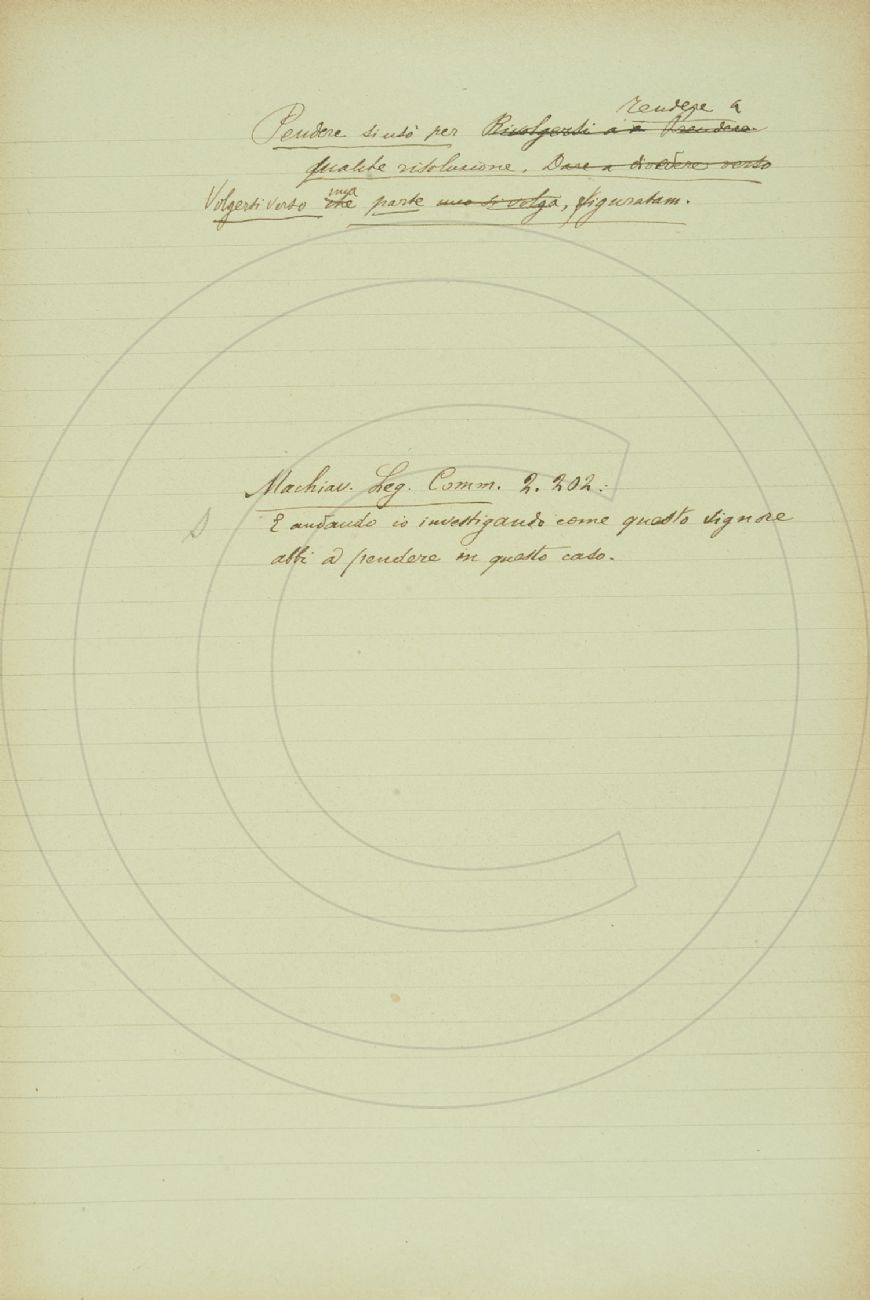 Tendere a
Pendere si usò per Rivolgersi a a Prendere
qualche risoluzione. Dare a divedere verso
Volgersi verso una che parte uno si volga, figuratam.
Machiav. Leg. Comm. 2. 202:
E andando io investigando come questo signore
abbi a pendere in questo caso.